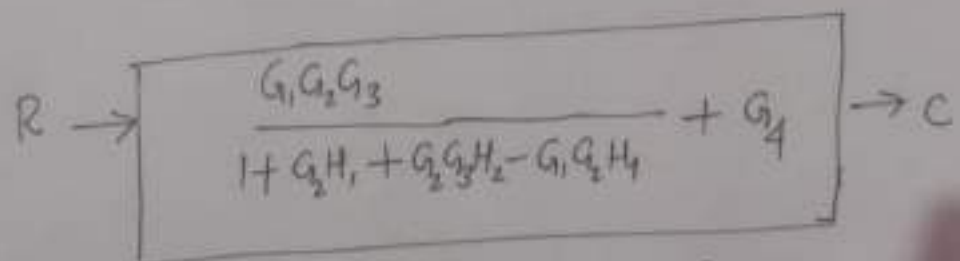 R → G₁G₂G₃ / (1 + G₂H₁ + G₂G₃H₂ - G₁G₂H₁) + G₄ → C